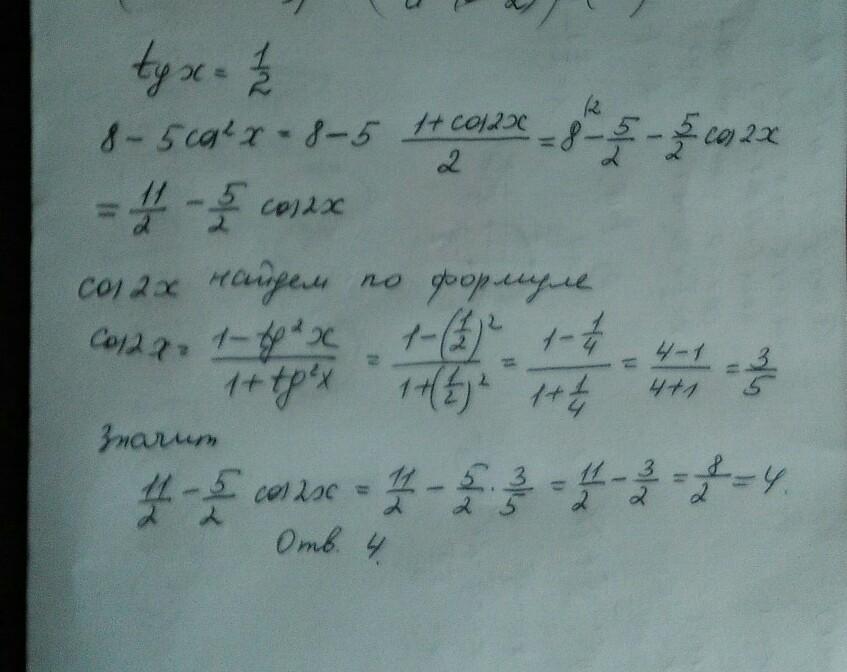 tg x = 1/2
8 - 5 cos² x = 8 - 5 (1 + cos 2x)/2 = 8 - 5/2 - 5/2 cos 2x
= 11/2 - 5/2 cos 2x
cos 2x найдем по формуле
cos 2x = (1 - tg² x)/(1 + tg² x) = (1 - (1/2)²)/(1 + (1/2)²) = (1 - 1/4)/(1 + 1/4) = (4 - 1)/(4 + 1) = 3/5
Значит
11/2 - 5/2 cos 2x = 11/2 - 5/2 · 3/5 = 11/2 - 3/2 = 8/2 = 4.
Отв. 4